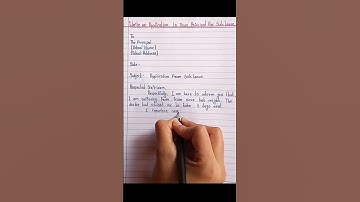 Write an Application to Your Principal For Sick Leave
To
The Principal
[School Name]
[School Address]
Date:-
Subject:- Application From Sick Leave
Respected Sir/Ma'am,
Respectfully, I am here to inform you that
I am suffering from fever since last night. The
doctor has advised me to take 3 days rest.
I therefore